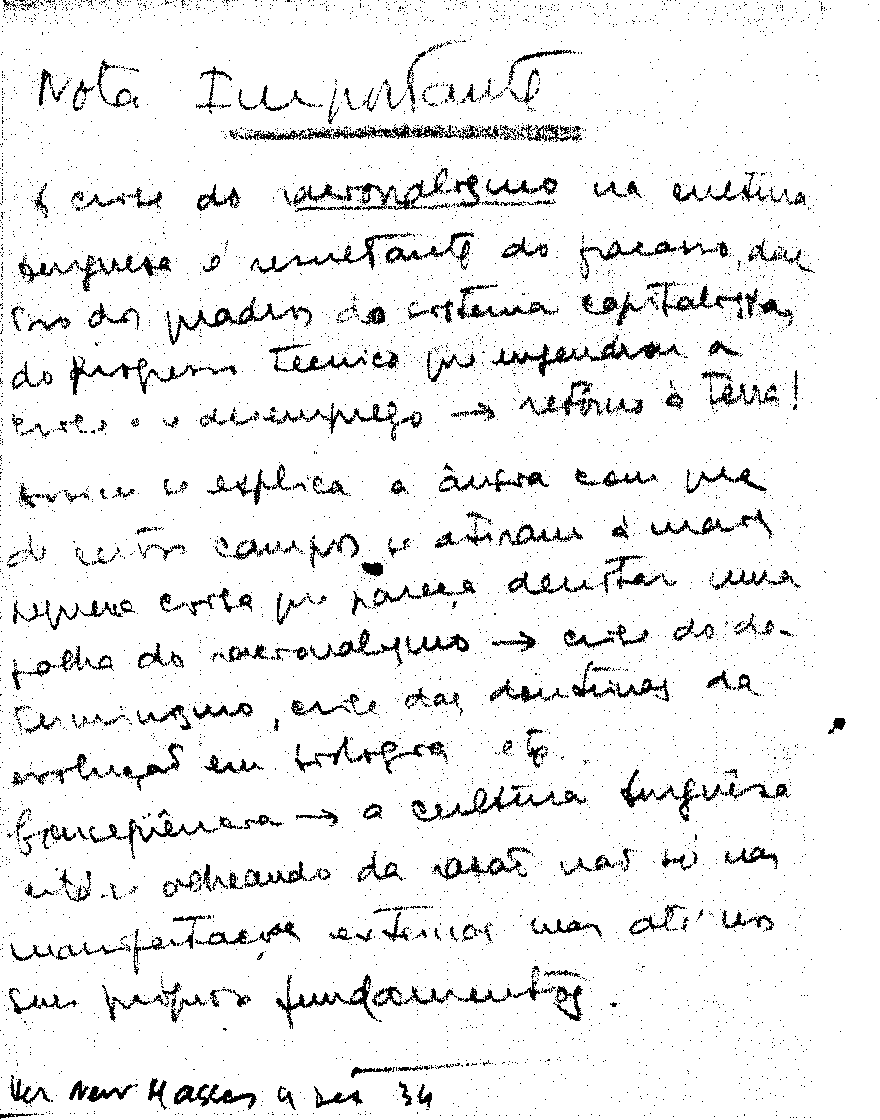 Nota Importante
A crise do racionalismo na cultura
burguesa é resultante do fracasso, den
tro dos quadros do sistema capitalista,
do progresso técnico que engendrou a
crise e o desemprego → retorno à terra!
Assim se explica a ânsia com que
de certos campos se atiram à mais
pequena coisa que pareça denotar uma
falha do racionalismo → crise do de-
terminismo, crise das doutrinas da
evolução em biologia etc.
Consequência → a cultura burguêsa
está-se alheando da razão não só nas
manifestações externas mas até nos
seus próprios fundamentos.
Ver New Masses 4 Dez 34